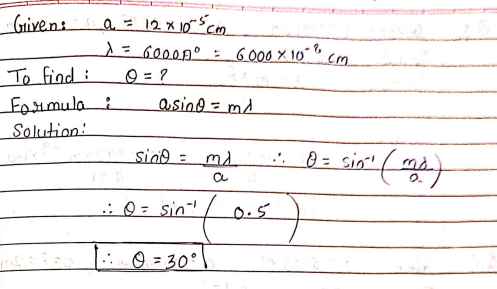 Given: a = 12 × 10⁻⁵ cm
λ = 6000A° = 6000 × 10⁻⁸ cm
To find : θ = ?
Formula : asinθ = mλ
Solution:
sinθ = mλ/a ∴ θ = sin⁻¹ (mλ/a)
∴ θ = sin⁻¹ ( 0.5 )
∴ θ = 30°